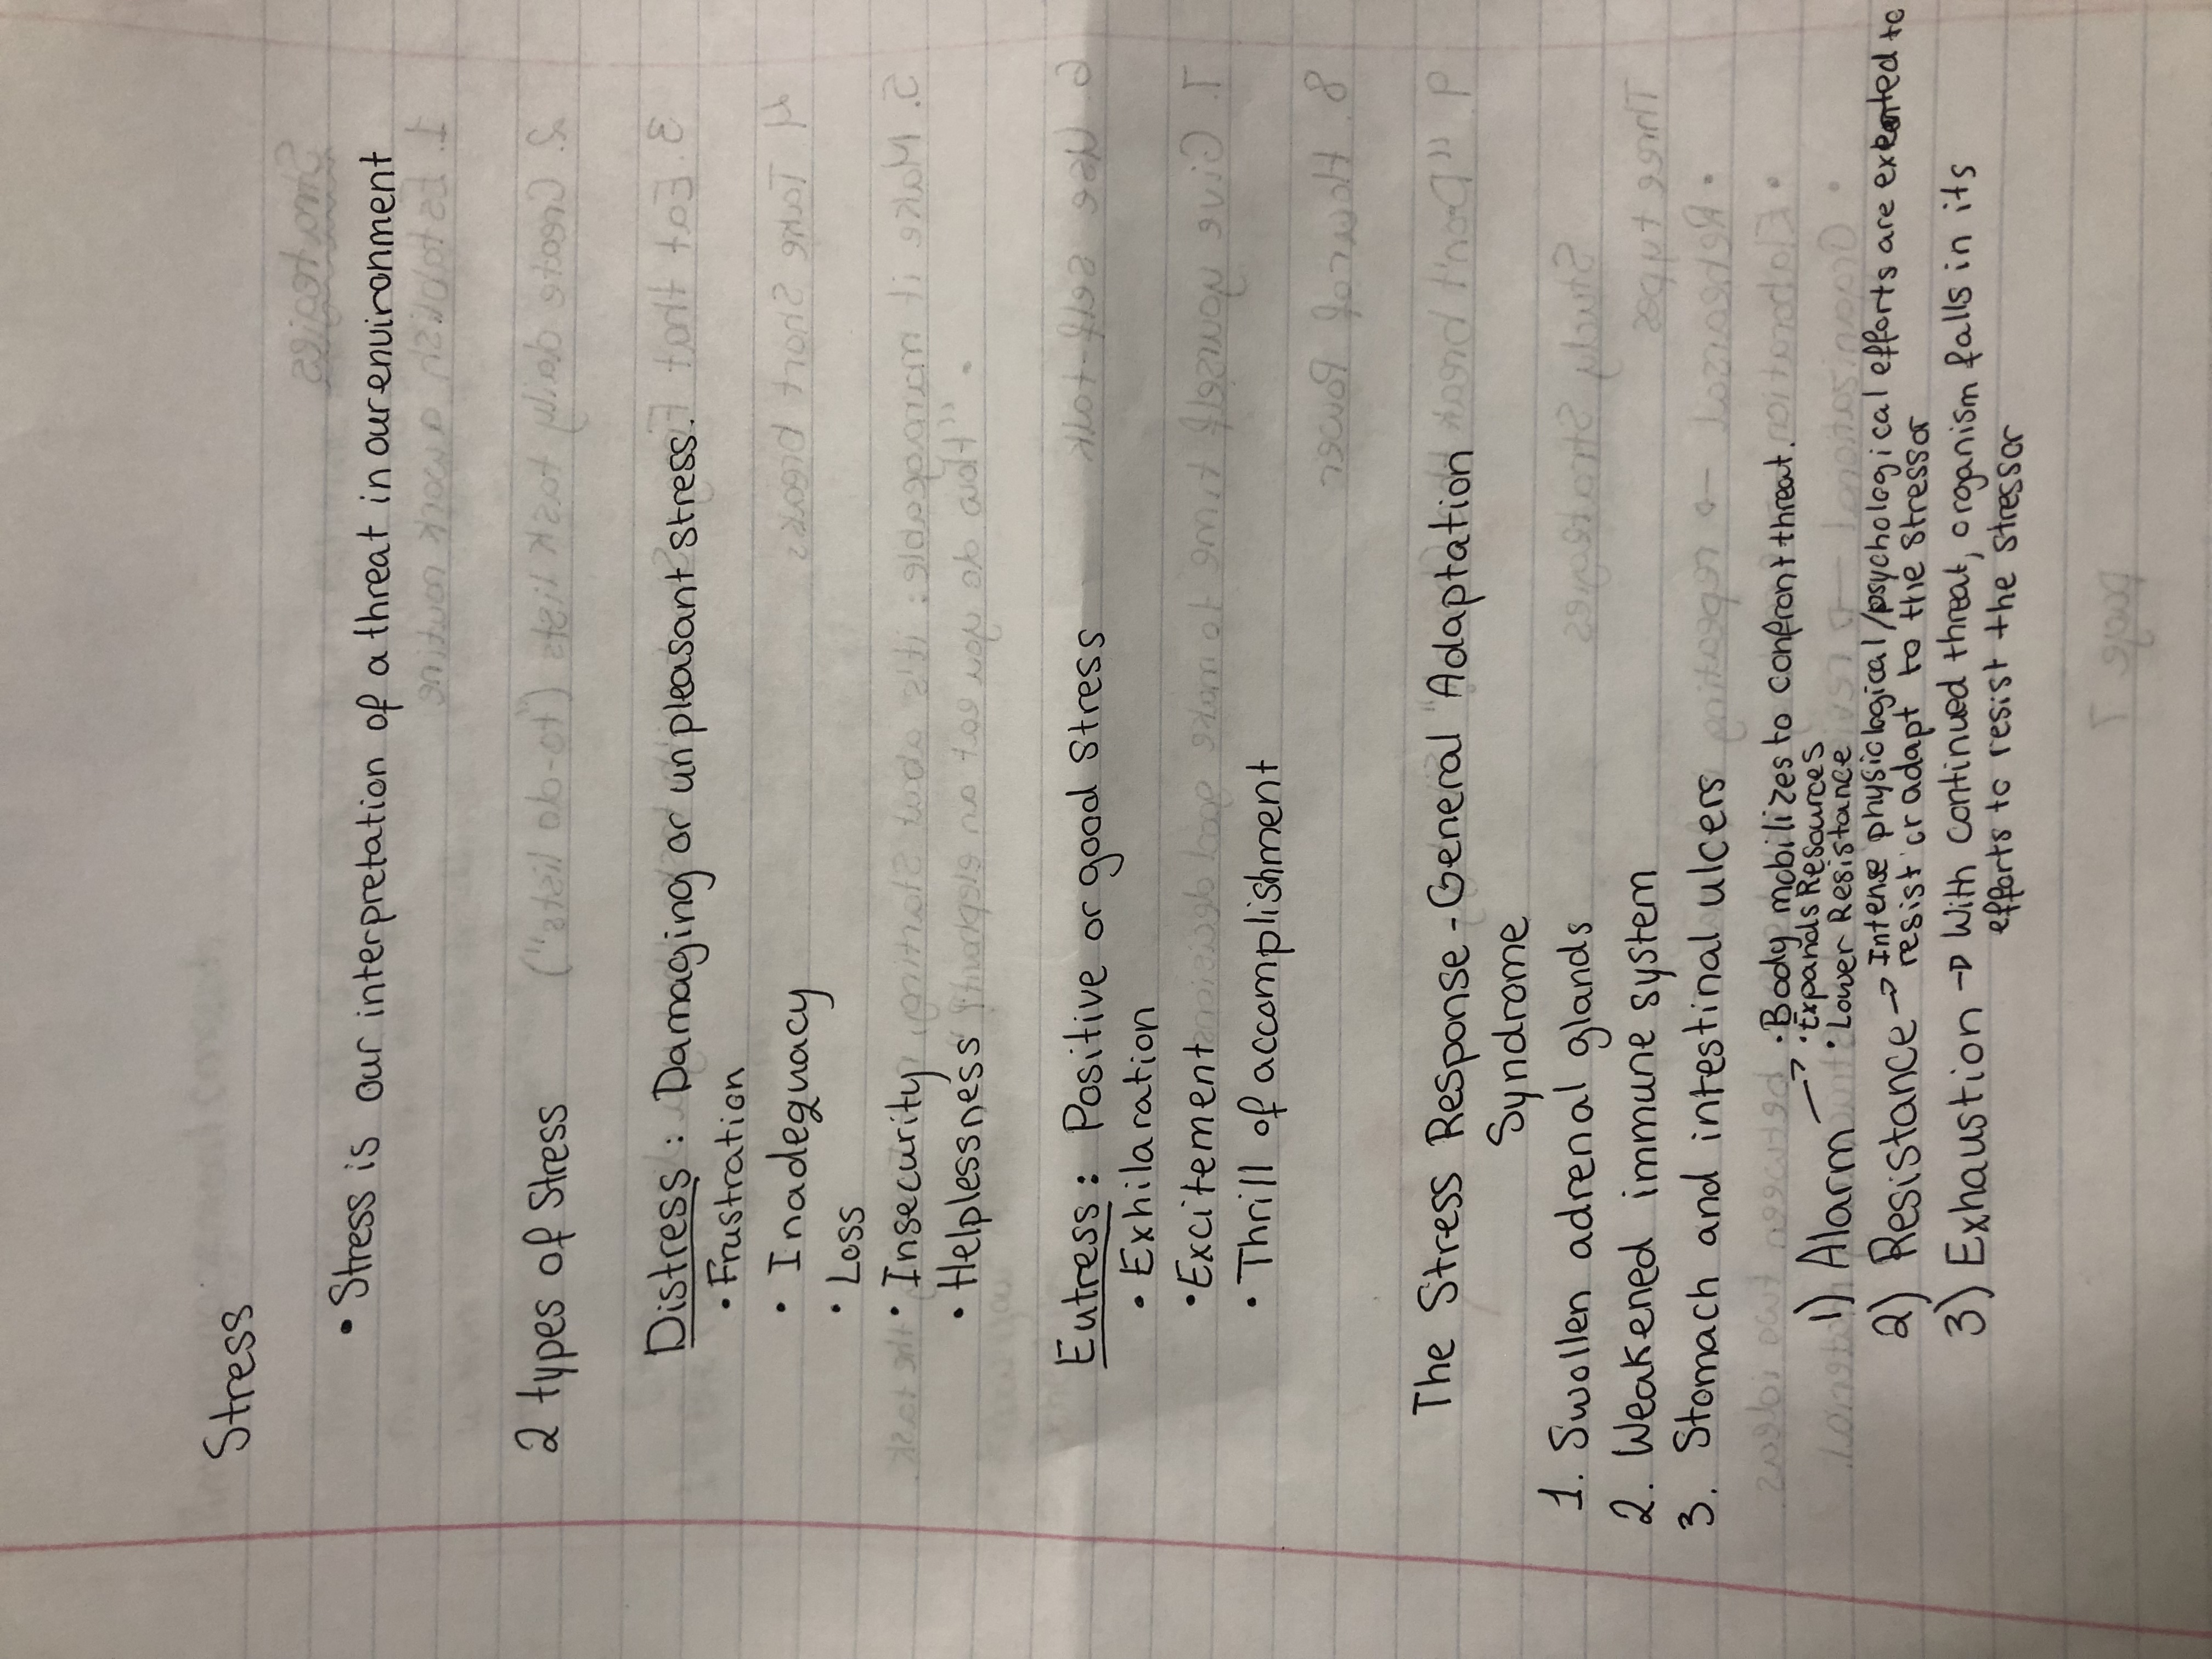 Stress
• Stress is our interpretation of a threat in our environment
2 types of Stress
Distress: Damaging or unpleasant stress.
• Frustration
• Inadequacy
• Loss
• Insecurity
• Helplessness
Eutress: Positive or good stress
• Exhilaration
• Excitement
• Thrill of accomplishment
The Stress Response - General Adaptation
Syndrome
1. Swollen adrenal glands
2. Weakened immune system
3. Stomach and intestinal ulcers
1) Alarm → • Body mobilizes to confront threat.
• Expands Resources
• Lower Resistance
2) Resistance → Intense physiological/psychological efforts are exerted to
resist or adapt to the stressor
3) Exhaustion → With continued threat, organism falls in its
efforts to resist the stressor